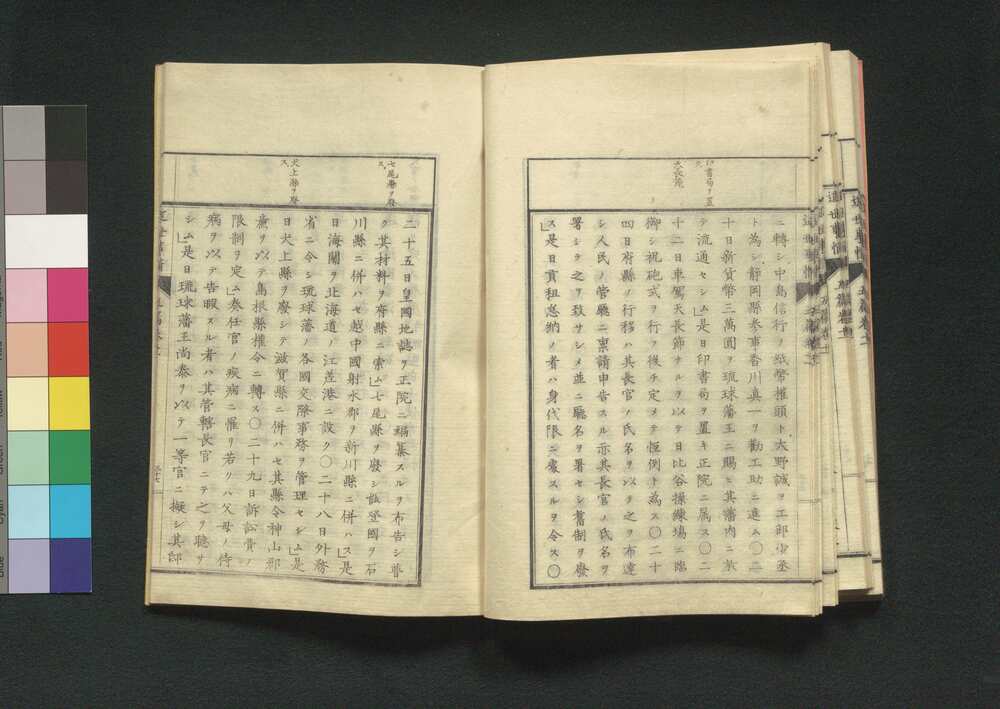 印書局ヲ置
ス
天長節
ニ轉シ中島信行ノ紙幣權頭ト大野誠ヲ工部少丞
ト為シ靜岡縣参事香川真一ヲ勸工助ニ進ム〇二
十日新貨幣三萬圓ヲ琉球藩王ニ賜ヒ其藩内ニ於
テ流通セシム」是日印書局ヲ置キ正院ニ属ス〇二
十二日車駕天長節ナルヲ以テ日比谷操練場ニ臨
御シ祝砲式ヲ行フ後チ定メテ恒例ト為ス〇二十
四日府縣ノ行移ハ其長官ノ氏名ヲ以テ之ヲ布達
シ人民ノ管廳ニ稟請申告スル亦其長官ノ氏名ヲ
署シテ之ヲ致サシメ並ニ廳名ヲ署セシ舊制ヲ廢
ス是日貢租怠納ノ者ハ身代限ニ處スルヲ令ス〇
七尾縣ヲ廢
ス
犬上縣ヲ廢
ス
二十五日皇國地誌ヲ正院ニ編纂スルヲ布告シ普
ク其材料ヲ府縣ニ索ム」七尾縣ヲ廢シ能登國ヲ石
川縣ニ併ハセ越中國射水郡ヲ新川縣ニ併ハス」是
日海關ヲ北海道ノ江差港ニ設ク〇二十八日外務
省ニ令シ琉球藩ノ各國交際事務ヲ管理セシム」是
日犬上縣ヲ廢シテ滋賀縣ニ併ハセ其縣令神山郡
廉ヲ以テ島根縣權令ニ轉ス〇二十九日訴訟費ノ
限制ヲ定ム」奏任官ノ疾病ニ罹リ若クハ父母ノ侍
病ヲ以テ告暇スル者ハ其管轄長官ニテ之ヲ聴サ
シム」是日琉球藩王尚泰ヲ以テ一等官ニ擬シ其邸